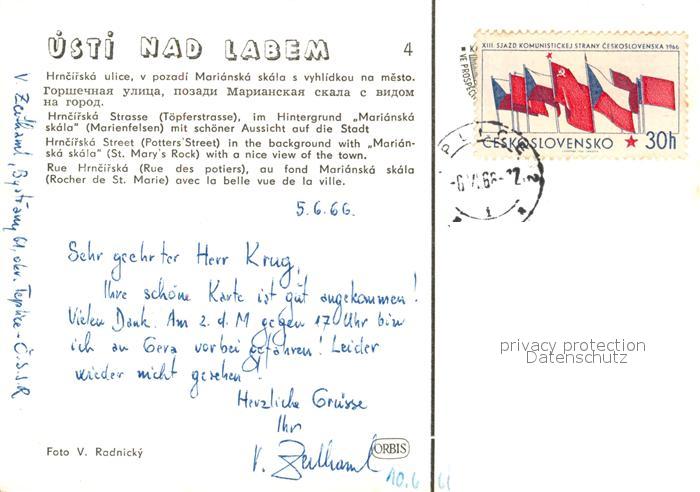 ÚSTÍ NAD LABEM 4
Hrnčířská ulice, v pozadí Mariánská skála s vyhlídkou na město.
Горшечная улица, позади Марианская скала с видом
на город.
Hrnčířská Strasse (Töpferstrasse), im Hintergrund „Mariánská
skála" (Marienfelsen) mit schöner Aussicht auf die Stadt
Hrnčířská Street (Potters'Street) in the background with „Marián-
ská skála" (St. Mary's Rock) with a nice view of the town.
Rue Hrnčířská (Rue des potiers), au fond Mariánská skála
(Rocher de St. Marie) avec la belle vue de la ville.
5.6.66.
Sehr geehrter Herr Krug,
Ihre schöne Karte ist gut angekommen!
Vielen Dank. Am 2. d. M gegen 17 Uhr bin
ich an Gera vorbei gefahren! Leider
wieder nicht gesehen!
Herzliche Grüsse
Ihr
V.
Foto V. Radnický
ORBIS
10.6
V Bystřany 61, okr. Teplice - Č.S.S.R
XIII SJAZD KOMUNISTICKEJ STRANY ČESKOSLOVENSKA 1966
VE PROSPĚCH
ČESKOSLOVENSKO 30h
privacy protection
Datenschutz